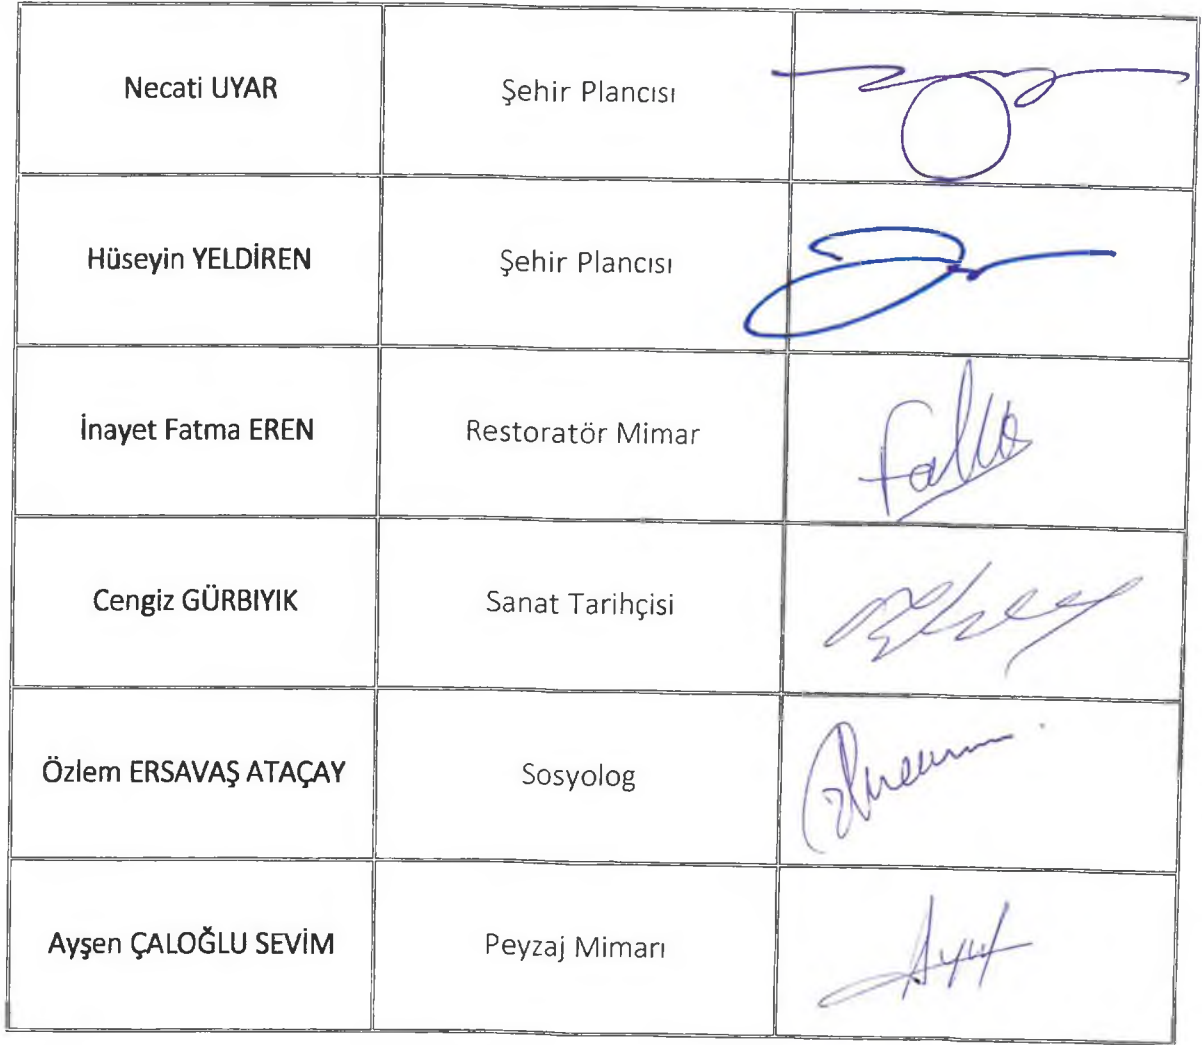 Necati UYAR
Şehir Plancısı
Hüseyin YELDİREN
Şehir Plancısı
İnayet Fatma EREN
Restoratör Mimar
Cengiz GÜRBIYIK
Sanat Tarihçisi
Özlem ERSAVAŞ ATAÇAY
Sosyolog
Ayşen ÇALOĞLU SEVİM
Peyzaj Mimarı